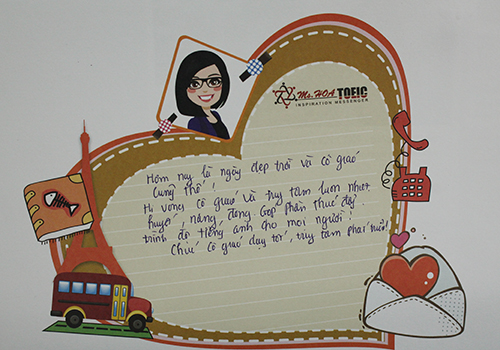 Ms.HOA TOEIC
INSPIRATION MESSENGER
Hôm nay là ngày đẹp trời và cô giáo
cũng thế!
Hi vọng cô giáo và trung tâm luôn nhiệt
huyết, năng động góp phần thúc đẩy
trình độ tiếng anh cho mọi người!
Chúc cô giáo dạy tốt, trung tâm phát triển!